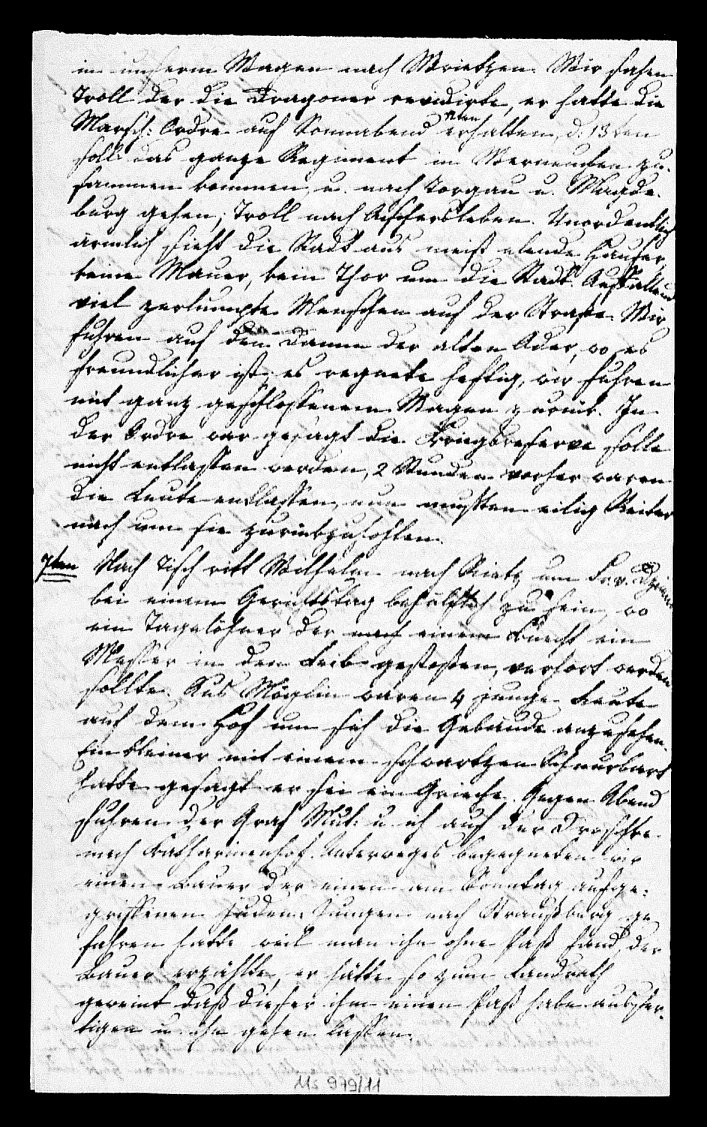 in unserm Wagen nach Wrietzen. Wir sahen
Troll der die Dragoner revidirte, er hatte die
Marsch: Ordre auf Sonnabend erhalten, d: 13ten
soll das ganze Regiment in Werneuchen zu-
sammen kommen, u. nach Torgau u. Magde-
burg gehen; Troll nach Aschersleben. Unordentlich
ärmlich sieht die Stadt aus meist elende Häuser,
keine Mauer, kein Thor um die Stadt. Auffallend
viel zerlumpte Menschen auf der Straße. Wir
fuhren auf den Damm der alten Oder, wo es
freundlicher ist, es regnete heftig, wir fuhren
mit ganz geschlossenem Wagen zurück. In
der Ordre war gesagt die Kriegsreserve solle
nicht entlassen werden, 2 Stunden vorher waren
die Leute entlassen, nun mußten eilig Reiter
nach um sie zurückzuhohlen.
7ten Nach Tisch ritt Wilhelm nach Rietz um
bei einem Gerichtstag behülflich zu sein, wo
ein Tagelöhner der einem Knecht ein
Messer in den Leib gestoßen, verhört werden
sollte. Aus Möglin waren 4 junge Leute
auf dem Hof um sich die Gebäude anzusehen.
Ein kleiner mit einem schwartzen Schnurbart
hatte gesagt er sei ein Grieche. Gegen Abend
fuhren der Graf Mut: u. ich auf der Droschke
nach Katharinenhof. Unterweges begegneten wir
einen Bauer der einen am Sonntag aufge-
griffenen Juden-Jungen nach Straußberg ge
fahren hatte weil man ihn ohne Paß fand, der
Bauer erzählte, er hätte so zum Landrath
geweint daß dieser ihm einen Paß habe ausfer-
tigen u. ihn gehen lassen.
11s 979/11